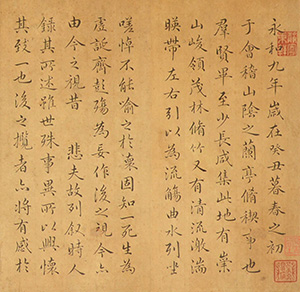 永和九年歲在癸丑暮春之初
于會稽山陰之蘭亭脩稧事也
羣賢畢至少長咸集此地有崇
山峻領茂林脩竹又有清流激湍
暎帶左右引以為流觴曲水列坐
嗟悼不能喻之於懷固知一死生為
虛誕齊彭殤為妄作後之視今亦
由今之視昔 悲夫故列叙時人
錄其所述雖世殊事異所以興懷
其致一也後之攬者亦將有感於